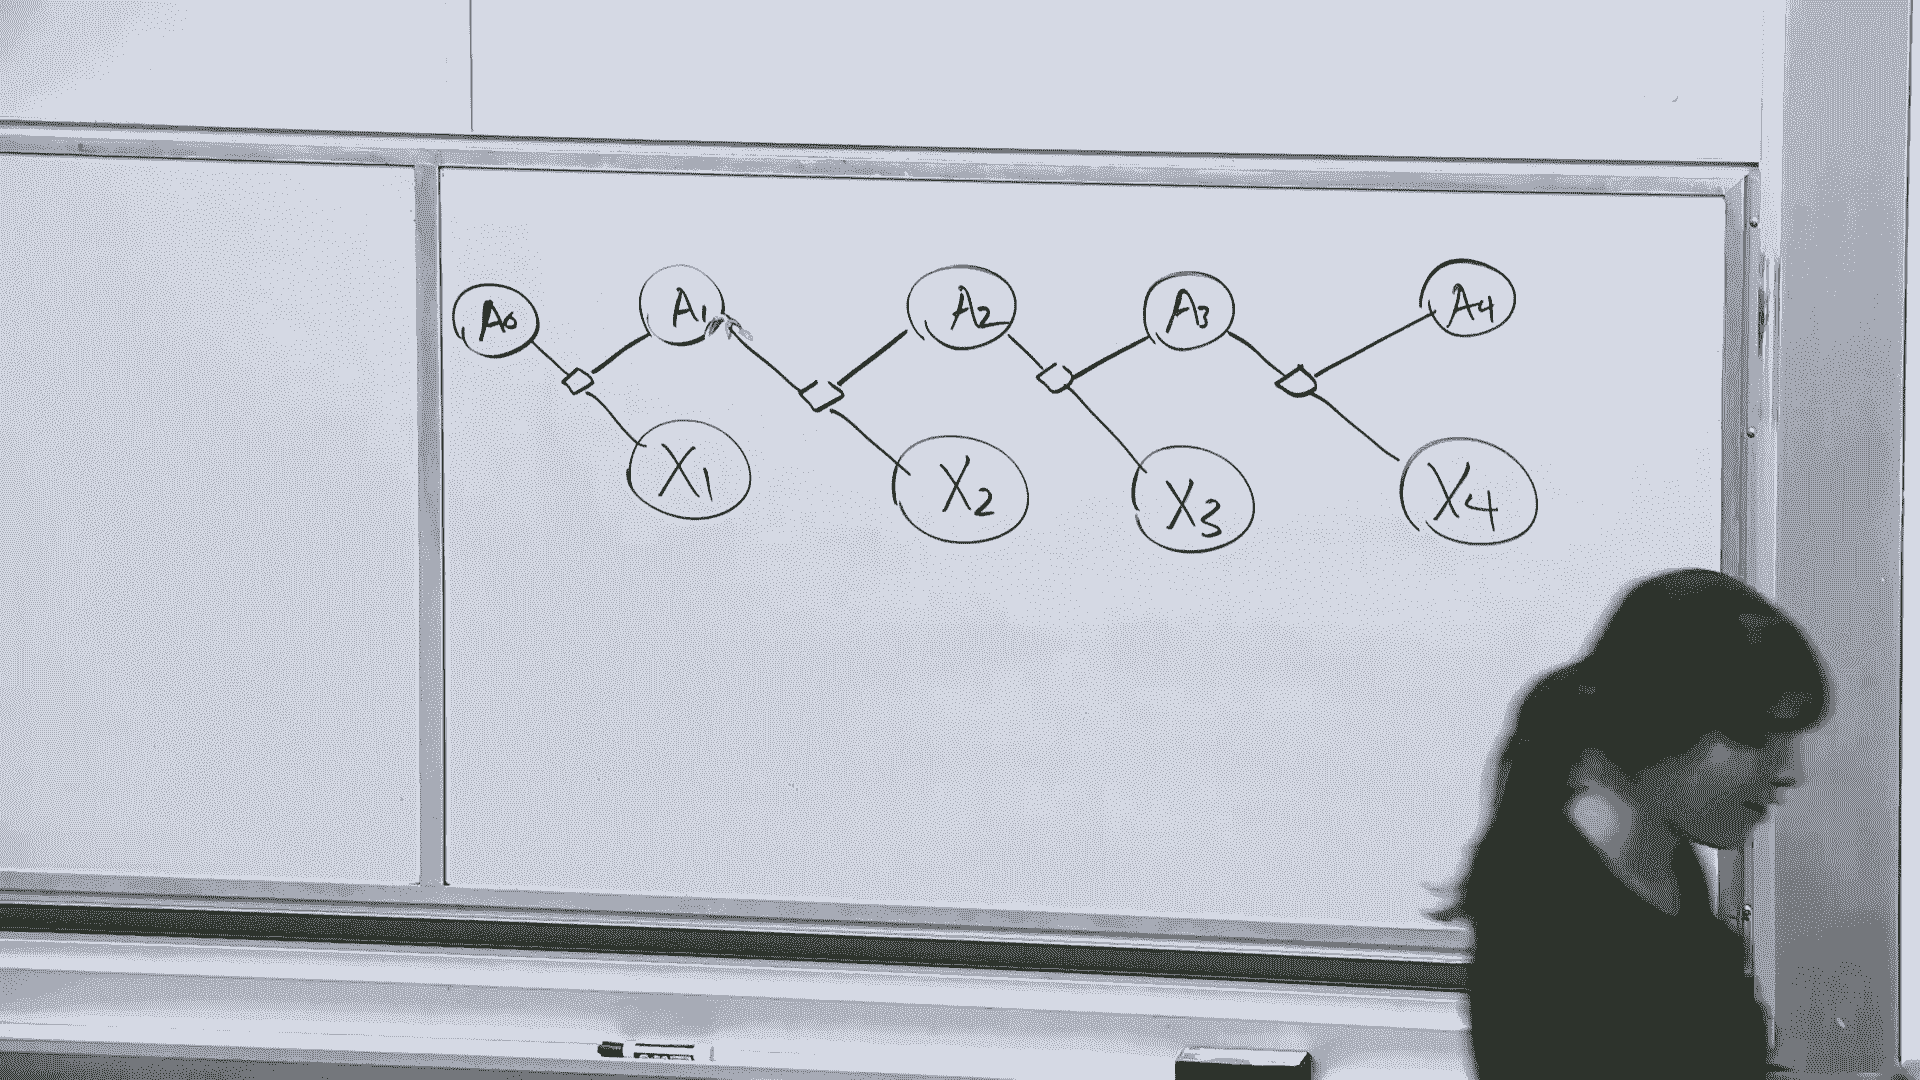 A0 A1 A2 A3 A4
X1 X2 X3 X4